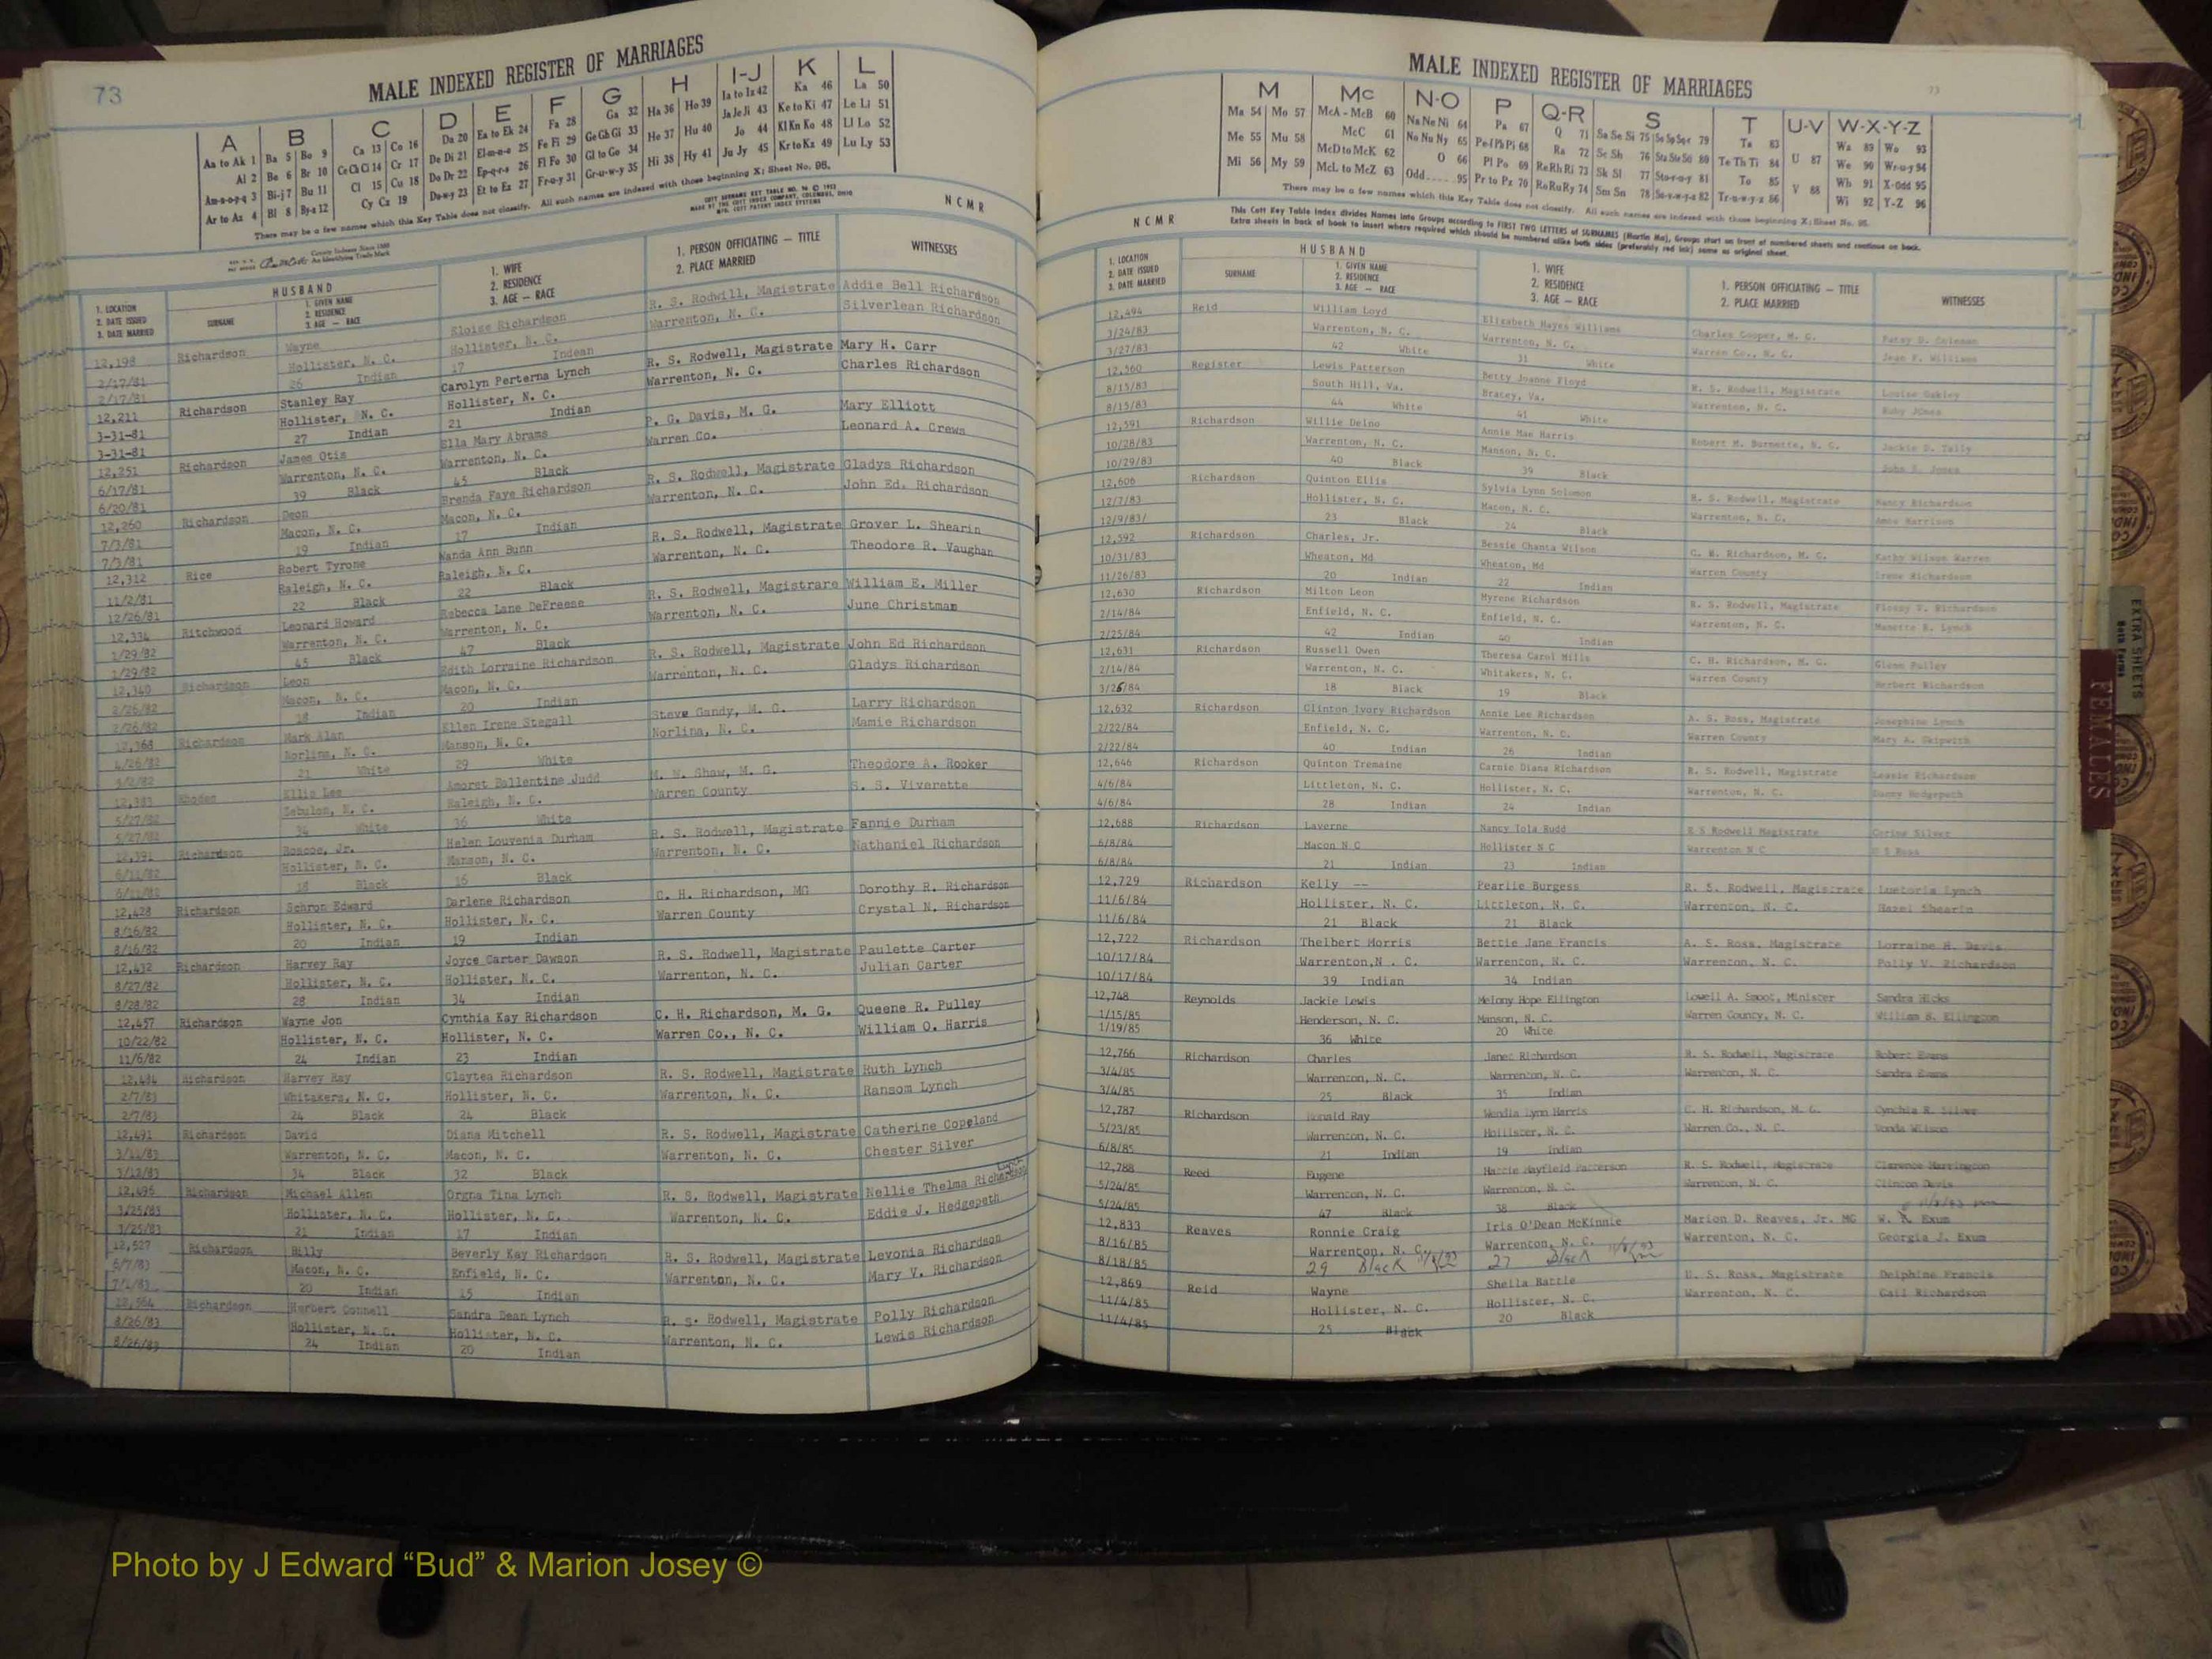 73
MALE INDEXED REGISTER OF MARRIAGES
A B C D E F G H I-J K L
Aa to Ak 1 Ba 5 Bo 9 Ca 13 Co 16 Da 20 Ea to Ek 24 Fa 28 Ga 32 Ha 36 Ho 39 Ia to Iz 42 Ka 46 La 50
Al 2 Be 6 Br 10 Ce Ch Ci 14 Cr 17 De Di 21 El-m-n-o 25 Fe Fi 29 Ge Gh Gi 33 He 37 Hu 40 Ja Je Ji 43 Ke to Ki 47 Le Li 51
Am-n-o-p-q 3 Bi-j 7 Bu 11 Cl 15 Cu 18 Do Dr 22 Ep-q-r-s 26 Fl Fo 30 Gl to Go 34 Hi 38 Hy 41 Jo 44 Kl Kn Ko 48 Ll Lo 52
Ar to Az 4 Bl 8 By-z 12 Cy Cz 19 Du-w-y 23 Et to Ez 27 Fr-u-y 31 Gr-u-w-y 35 Ju Jy 45 Kr to Kz 49 Lu Ly 53
There may be a few names which this Key Table does not classify. All such names are indexed with those beginning X; Sheet No. 95.
N C M R
HUSBAND
1. LOCATION 2. DATE ISSUED 3. DATE MARRIED
SURNAME
1. GIVEN NAME 2. RESIDENCE 3. AGE — RACE
1. WIFE 2. RESIDENCE 3. AGE — RACE
1. PERSON OFFICIATING — TITLE 2. PLACE MARRIED
WITNESSES
12,198 Richardson Wayne Eloise Richardson R. S. Rodwill, Magistrate Addie Bell Richardson
2/17/81 Hollister, N. C. Hollister, N. C. Warrenton, N. C. Silverlean Richardson
2/17/81 26 Indian 17 Indean
12,211 Richardson Stanley Ray Carolyn Perterna Lynch R. S. Rodwell, Magistrate Mary H. Carr
3-31-81 Hollister, N. C. Hollister, N. C. Warrenton, N. C. Charles Richardson
3-31-81 27 Indian 21 Indian
12,251 Richardson James Otis Ella Mary Abrams P. G. Davis, M. G. Mary Elliott
6/17/81 Warrenton, N. C. Warrenton, N. C. Warren Co. Leonard A. Crews
6/20/81 39 Black 45 Black
12,260 Richardson Deon Brenda Faye Richardson R. S. Rodwell, Magistrate Gladys Richardson
7/3/81 Macon, N. C. Macon, N. C. Warrenton, N. C. John Ed. Richardson
7/3/81 19 Indian 17 Indian
12,312 Rice Robert Tyrone Wanda Ann Bunn R. S. Rodwell, Magistrate Grover L. Shearin
11/2/81 Raleigh, N. C. Raleigh, N. C. Warrenton, N. C. Theodore R. Vaughan
12/26/81 22 Black 22 Black
12,334 Ritchwood Leonard Howard Rebecca Lane DeFreese R. S. Rodwell, Magistrare William E. Miller
1/29/82 Warrenton, N. C. Warrenton, N. C. Warrenton, N. C. June Christman
1/29/82 45 Black 47 Black
12,340 Richardson Leon Edith Lorraine Richardson R. S. Rodwell, Magistrate John Ed Richardson
2/26/82 Macon, N. C. Macon, N. C. Warrenton, N. C. Gladys Richardson
2/26/82 18 Indian 20 Indian
12,368 Richardson Mark Alan Ellen Irene Stegall Steve Gandy, M. G. Larry Richardson
4/26/82 Norlina, N. C. Manson, N. C. Norlina, N. C. Mamie Richardson
5/2/82 21 White 29 White
12,383 Rhodes Ellis Lee Amoret Ballentine Judd M. W. Shaw, M. G. Theodore A. Rooker
5/27/82 Zebulon, N. C. Raleigh, N. C. Warren County S. S. Viverette
5/27/82 34 White 36 White
12,391 Richardson Roscoe, Jr. Helen Louvenia Durham R. S. Rodwell, Magistrate Fannie Durham
6/11/82 Hollister, N. C. Manson, N. C. Warrenton, N. C. Nathaniel Richardson
6/11/82 18 Black 16 Black
12,428 Richardson Schron Edward Darlene Richardson C. H. Richardson, MG Dorothy R. Richardson
8/16/82 Hollister, N. C. Hollister, N. C. Warren County Crystal N. Richardson
8/16/82 20 Indian 19 Indian
12,432 Richardson Harvey Ray Joyce Carter Dawson R. S. Rodwell, Magistrate Paulette Carter
8/27/82 Hollister, N. C. Hollister, N. C. Warrenton, N. C. Julian Carter
8/28/82 28 Indian 34 Indian
12,457 Richardson Wayne Jon Cynthia Kay Richardson C. H. Richardson, M. G. Queene R. Pulley
10/22/82 Hollister, N. C. Hollister, N. C. Warren Co., N. C. William O. Harris
11/6/82 24 Indian 23 Indian
12,484 Richardson Harvey Ray Claytea Richardson R. S. Rodwell, Magistrate Ruth Lynch
2/7/83 Whitakers, N. C. Hollister, N. C. Warrenton, N. C. Ransom Lynch
2/7/83 24 Black 24 Black
12,491 Richardson David Diana Mitchell R. S. Rodwell, Magistrate Catherine Copeland
3/11/83 Warrenton, N. C. Macon, N. C. Warrenton, N. C. Chester Silver
3/12/83 34 Black 32 Black
12,496 Richardson Michael Allen Orgna Tina Lynch R. S. Rodwell, Magistrate Nellie Thelma Richardson
3/25/83 Hollister, N. C. Hollister, N. C. Warrenton, N. C. Eddie J. Hedgepeth
3/25/83 21 Indian 17 Indian
12,527 Richardson Billy Beverly Kay Richardson R. S. Rodwell, Magistrate Levonia Richardson
6/7/83 Macon, N. C. Enfield, N. C. Warrenton, N. C. Mary V. Richardson
7/1/83 20 Indian 15 Indian
12,564 Richardson Herbert Connell Sandra Dean Lynch R. S. Rodwell, Magistrate Polly Richardson
8/26/83 Hollister, N. C. Hollister, N. C. Warrenton, N. C. Lewis Richardson
8/26/83 24 Indian 20 Indian
MALE INDEXED REGISTER OF MARRIAGES
73
M Mc N-O P Q-R S T U-V W-X-Y-Z
Ma 54 Mo 57 McA - McB 60 Na Ne Ni 64 Pa 67 Q 71 Sa Se Si 75 So Sp Sq-r 79 Ta 83 Wa 89 Wo 93
Me 55 Mu 58 McC 61 No Nu Ny 65 Pe-f Ph Pi 68 Ra 72 Sc Sh 76 Sta Ste Sti 80 Te Th Ti 84 U 87 We 90 Wr-u-y 94
Mi 56 My 59 McD to McK 62 O 66 Pl Po 69 Re Rh Ri 73 Sk Sl 77 Sto-r-u-y 81 To 85 V 88 Wh 91 X-Odd 95
McL to McZ 63 Odd 95 Pr to Pz 70 Ro Ru Ry 74 Sm Sn 78 Su-v-w-y-z 82 Tr-u-w-y-z 86 Wi 92 Y-Z 96
There may be a few names which this Key Table does not classify. All such names are indexed with those beginning X; Sheet No. 95.
This Cott Key Table Index divides Names into Groups according to FIRST TWO LETTERS of SURNAMES (Martin Ma), Groups start on front of numbered sheets and continue on back.
Extra sheets in back of book to insert where required which should be numbered alike both sides (preferably red ink) same as original sheet.
N C M R
HUSBAND
1. LOCATION 2. DATE ISSUED 3. DATE MARRIED
SURNAME
1. GIVEN NAME 2. RESIDENCE 3. AGE — RACE
1. WIFE 2. RESIDENCE 3. AGE — RACE
1. PERSON OFFICIATING — TITLE 2. PLACE MARRIED
WITNESSES
12,494 Reid William Loyd Elizabeth Hayes Williams Charles Cooper, M. G. Patsy D. Coleman
3/24/83 Warrenton, N. C. Warrenton, N. C. Warren Co., N. C. Jean F. Williams
3/27/83 42 White 31 White
12,560 Register Lewis Patterson Betty Joanne Floyd R. S. Rodwell, Magistrate Louise Oakley
8/15/83 South Hill, Va. Bracey, Va. Warrenton, N. C. Ruby Jones
8/15/83 44 White 41 White
12,591 Richardson Willie Delno Annie Mae Harris Robert M. Burnette, M. G. Jackie D. Tally
10/28/83 Warrenton, N. C. Manson, N. C. John S. Jones
10/29/83 40 Black 39 Black
12,606 Richardson Quinton Ellis Sylvia Lynn Solomon R. S. Rodwell, Magistrate Nancy Richardson
12/7/83 Hollister, N. C. Macon, N. C. Warrenton, N. C. Amos Harrison
12/9/83/ 23 Black 24 Black
12,592 Richardson Charles, Jr. Bessie Chanta Wilson C. H. Richardson, M. G. Kathy Wilson Warren
10/31/83 Wheaton, Md Wheaton, Md Warren County Irene Richardson
11/26/83 20 Indian 22 Indian
12,630 Richardson Milton Leon Myrene Richardson R. S. Rodwell, Magistrate Flossy V. Richardson
2/14/84 Enfield, N. C. Enfield, N. C. Warrenton, N. C. Nanette R. Lynch
2/25/84 42 Indian 40 Indian
12,631 Richardson Russell Owen Theresa Carol Mills C. H. Richardson, M. G. Glenn Pulley
2/14/84 Warrenton, N. C. Whitakers, N. C. Warren County Herbert Richardson
3/25/84 18 Black 19 Black
12,632 Richardson Clinton Ivory Richardson Annie Lee Richardson A. S. Ross, Magistrate Josephine Lynch
2/22/84 Enfield, N. C. Warrenton, N. C. Warren County Mary A. Skipwith
2/22/84 40 Indian 26 Indian
12,646 Richardson Quinton Tremaine Carnie Diana Richardson R. S. Rodwell, Magistrate Lessie Richardson
4/6/84 Littleton, N. C. Hollister, N. C. Warrenton, N. C. Danny Hedgepeth
4/6/84 28 Indian 24 Indian
12,688 Richardson Laverne Nancy Iola Rudd R S Rodwell Magistrate Corine Silver
6/8/84 Macon N C Hollister N C Warrenton N C
6/8/84 21 Indian 23 Indian
12,729 Richardson Kelly -- Pearlie Burgess R. S. Rodwell, Magistrate Luetoria Lynch
11/6/84 Hollister, N. C. Littleton, N. C. Warrenton, N. C. Hazel Shearin
11/6/84 21 Black 21 Black
12,722 Richardson Thelbert Morris Bettie Jane Francis A. S. Ross, Magistrate Lorraine H. Davis
10/17/84 Warrenton,N . C. Warrenton, N. C. Warrenton, N. C. Polly V. Richardson
10/17/84 39 Indian 34 Indian
12,748 Reynolds Jackie Lewis Melony Hope Ellington Lowell A. Smoot, Minister Sandra Hicks
1/15/85 Henderson, N. C. Manson, N. C. Warren County, N. C. William B. Ellington
1/19/85 36 White 20 White
12,766 Richardson Charles Janet Richardson R. S. Rodwell, Magistrate Robert Evans
3/4/85 Warrenton, N. C. Warrenton, N. C. Warrenton, N. C. Sandra Evans
3/4/85 25 Black 35 Indian
12,787 Richardson Ronald Ray Wendia Lynn Harris C. H. Richardson, M. G. Cynthia R. Silver
5/23/85 Warrenton, N. C. Hollister, N. C. Warren Co., N. C. Vonda Wilson
6/8/85 21 Indian 19 Indian
12,788 Reed Eugene Hattie Mayfield Patterson R. S. Rodwell, Magistrate Clarence Harrington
5/24/85 Warrenton, N. C. Warrenton, N. C. Warrenton, N. C. Clinton Davis
5/24/85 47 Black 38 Black
12,833 Reaves Ronnie Craig Iris O'Dean McKinnie Marion D. Reaves, Jr. MG W. R. Exum
8/16/85 Warrenton, N. C. Warrenton, N. C. Warrenton, N. C. Georgia J. Exum
8/18/85 29 Black 27 Black
12,869 Reid Wayne Sheila Battle Ross, Magistrate Delphine Francis
11/4/85 Hollister, N. C. Hollister, N. C. Warrenton, N. C. Gail Richardson
11/4/85 25 Black 20 Black
EXTRA SHEETS
FEMALES
Photo by J Edward “Bud” & Marion Josey ©